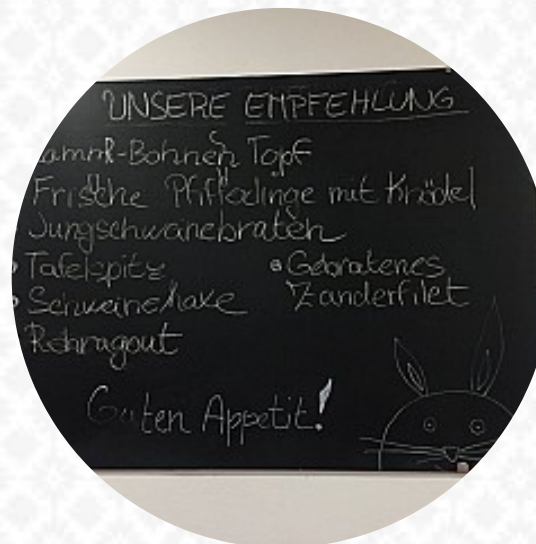 UNSERE EMPFEHLUNG
-Bohnen Topf
Frische Pfifferlinge mit Knödel
Jungschweinebraten
Tafelspitz
Schweinehaxe
Rehragout
Gebratenes
Zanderfilet
Guten Appetit!